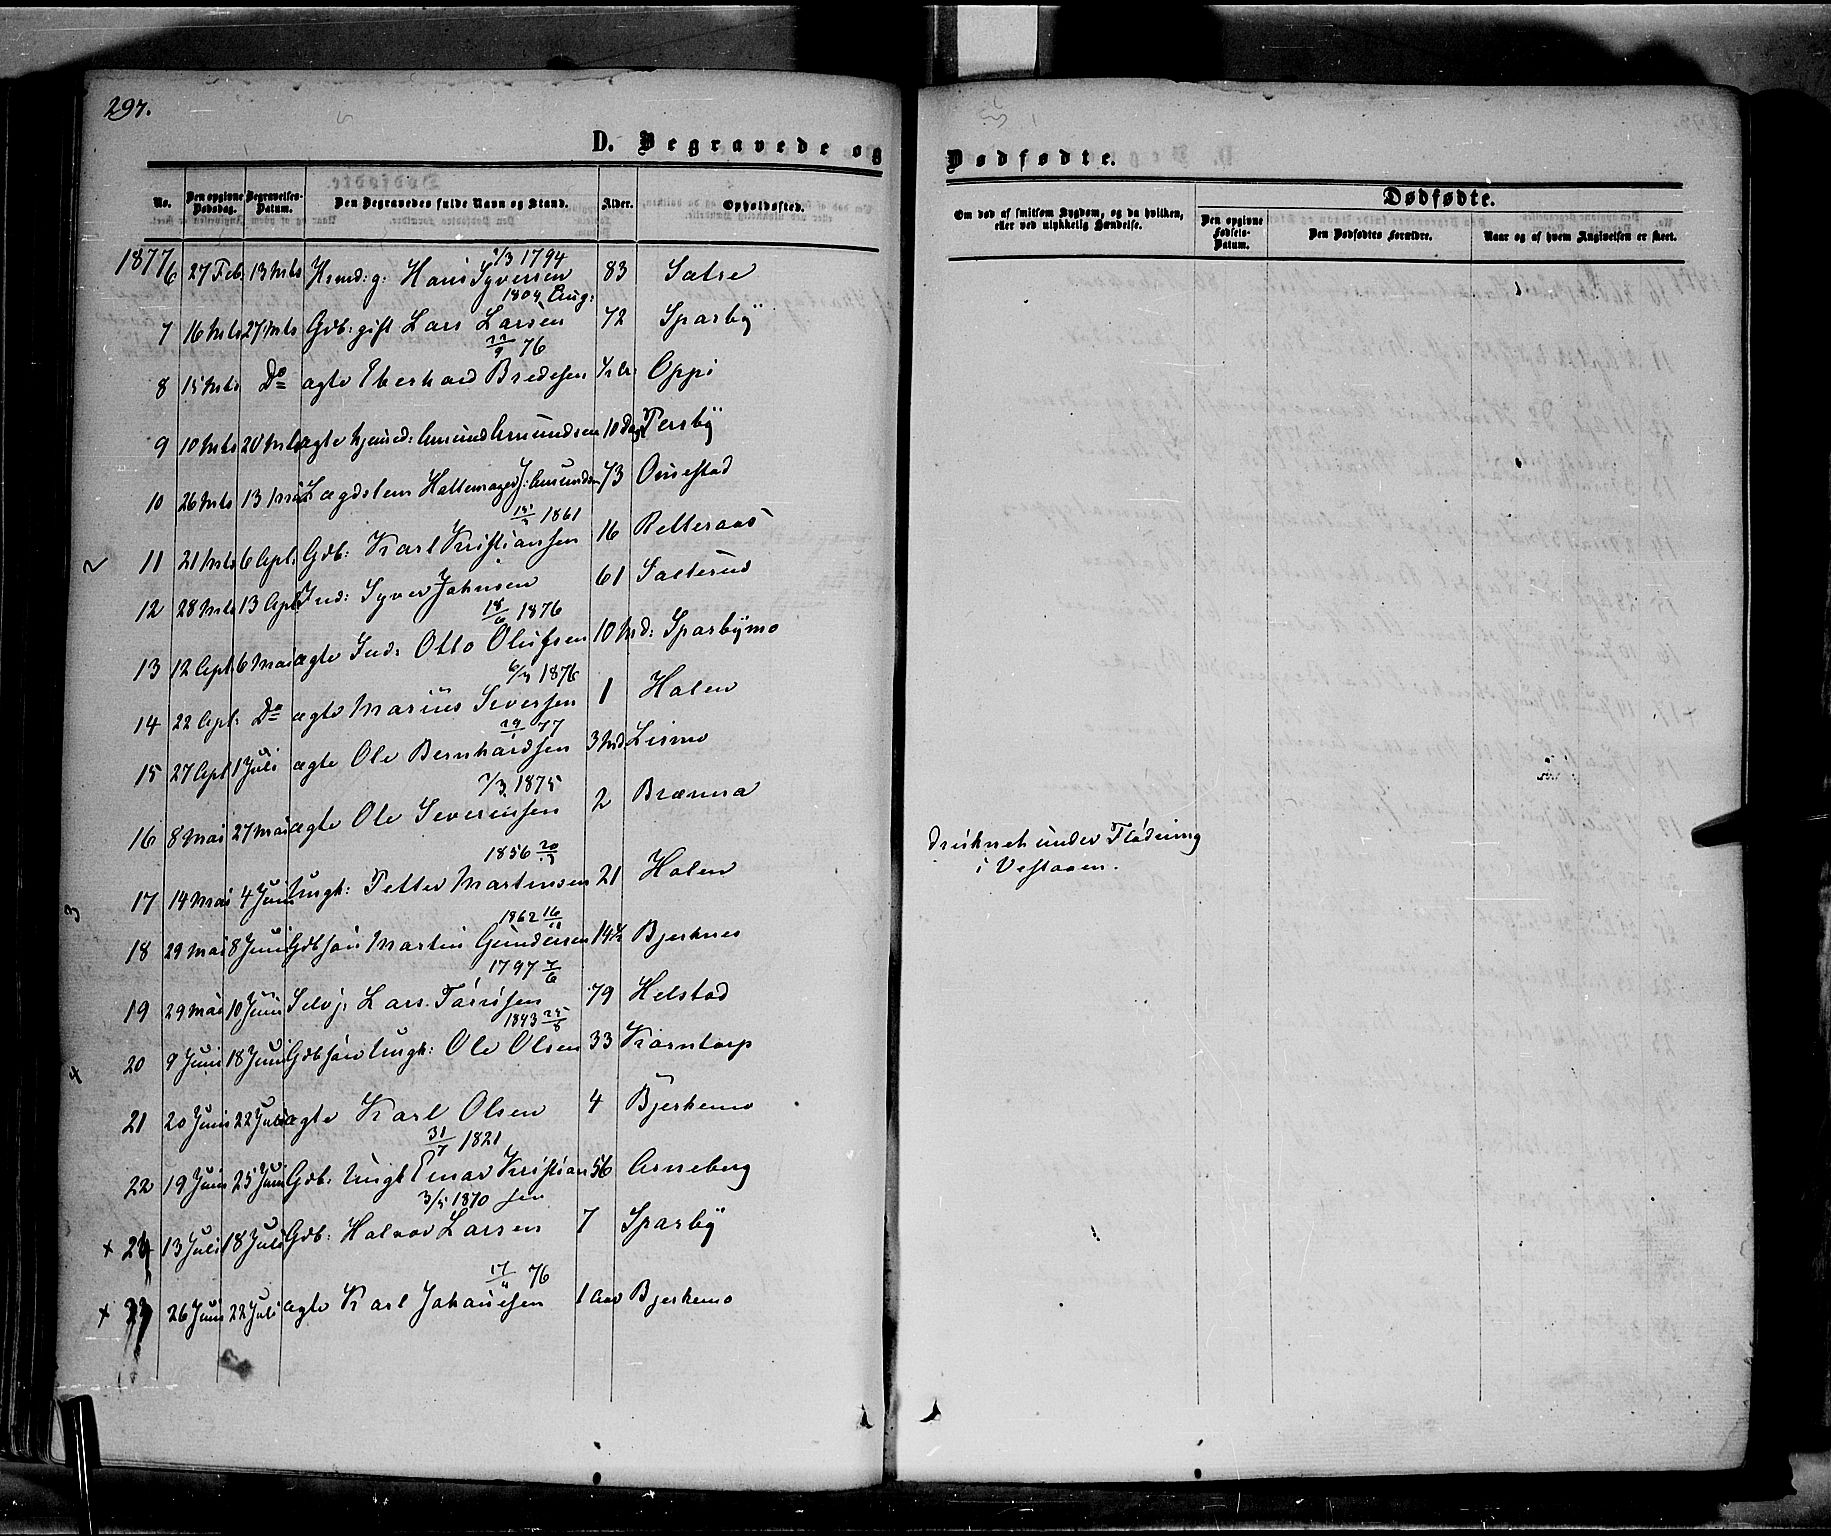 297.
D. Begravede og
Dødfødte.
No. Den opgivne Dødsdag. Begravelses-Datum. Den Begravedes fulde Navn og Stand. Alder. Opholdssted.
Om død af smitsom Sygdom, og da hvilken, eller ved ulykkelig Hændelse.
Dødfødte.
Den opgivne Fødsels-Datum. Den Dødfødtes Forældre. Naar og af hvem Angivelsen er skeet.
/3 1794
1877 6 27 Feb 13 Mts Hmd: g: Hans Syversen 83 Satre
1804 Aug:
7 16 Mts 27 Mts Gdb: gift Lars Larsen 72 Sparby
22/9 76
8 15 Mts Do ægte Eberhard Bredesen 1/2 Aar Oppi
9 10 Mts 20 Mts ægte hjemed: Amund Amundsen 10 Dag Persby
10 26 Mts 13 Mai Lægdslem Hattemager J: Amundsen 73 Onsestad
1861
11 21 Mts 6 Apl. Gdb: Karl Kristiansen 16 Retteraas
2
12 28 Mts 13 Apl Ind: Syver Johnsen 61 Saeterud
18/6 1876
13 12 Apl 6 Mai ægte Ind: Otto Olufsen 10 Md: Sparbymo
6/3 1876
14 22 Apl: Do ægte Marius Seversen 1 Holen
29/1 77
15 27 Apl 1 Juli ægte Ole Bernhardsen 3 Md Lismo
/3 1875
16 8 Mai 27 Mai ægte Ole Severinsen 2 Brænna
1856 20/3
17 14 Mai 4 Juni Ungk: Petter Martinsen 21 Holen
druknet under Flødning
i Vestaaen.
3
1862 16/11
18 29 Mai 8 Juni Gdbsøn Martin Gundersen 14 1/2 Bjerknes
1797 7/6
19 29 Mai 10 Juni Selvj. Lars Tørrisen 79 Helstad
1843 25/8
20 9 Juni 18 Juni Gdbsøn Ungk: Ole Olsen 33 Korntorp
4
21 20 Juni 22 Juli ægte Karl Olsen 4 Bjerkemo
31/7 1821
22 19 Juni 25 Juni Gdb: Ungk Einar Kristian 56 Arneberg
3/5 1870 sen
x 24 13 Juli 18 Juli Gdb: Halvor Larsen 7 Sparby
17/4 76
x 23 26 Juni 22 Juli ægte Karl Johannesen 1 Aar Bjerkemo